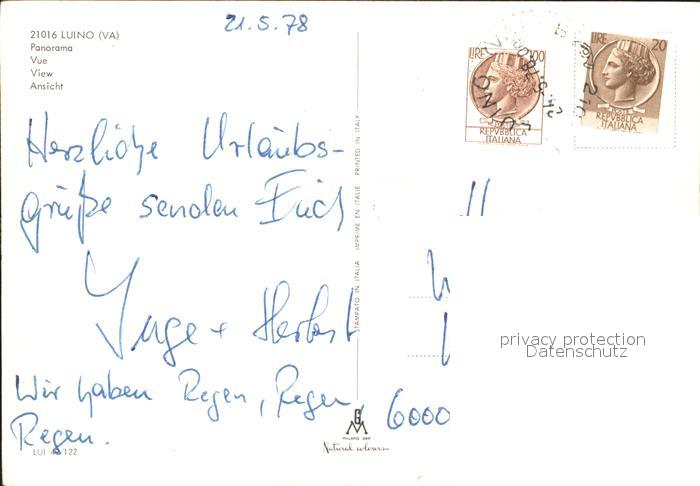 21.5.78
21016 LUINO (VA)
Panorama
Vue
View
Ansicht
LIRE 100
REPVBBLICA
ITALIANA
LIRE 20
REPVBBLICA
ITALIANA
LUINO
Herzliche Urlaubs-
grüße senden Euch
Inge + Herbert
Wir haben Regen, Regen,
Regen.
6000
STAMPATO IN ITALIA IMPRIMÉ EN ITALIE PRINTED IN ITALY
privacy protection
Datenschutz
MILANO
Natural colours